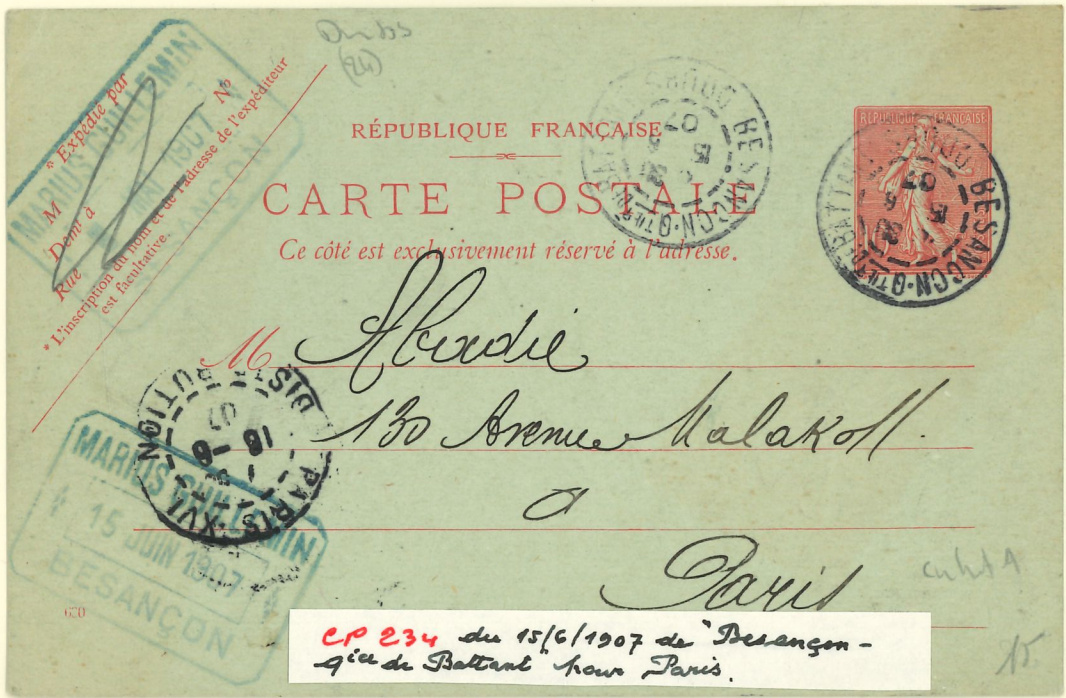 Doubs
(24)
* Expédié par
M
Dem<sup>t</sup> à
Rue N°
* L'inscription du nom et de l'adresse de l'expéditeur
est facultative.
MARIUS GUILLEMIN
JUIN 1907
BESANÇON
RÉPUBLIQUE FRANÇAISE
CARTE POSTALE
Ce côté est exclusivement réservé à l'adresse.
BESANÇON-QTIER BATTANT DOUBS
15 6 07
RÉPUBLIQUE FRANÇAISE
BESANÇON-QTIER BATTANT DOUBS
15 6 07
M Abadie
130 Avenue Malakoff.
a
Paris
PARIS·XVI DISTRIBUTION
16 - 6
07
MARIUS GUILLEMIN
15 JUIN 1907
BESANÇON
630
CP 234 du 15/6/1907 de "Besançon -
qier de Battant" pour Paris.
15